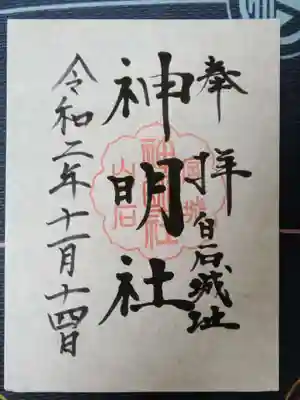 奉拝
白石城址
神明社
令和二年十一月十四日